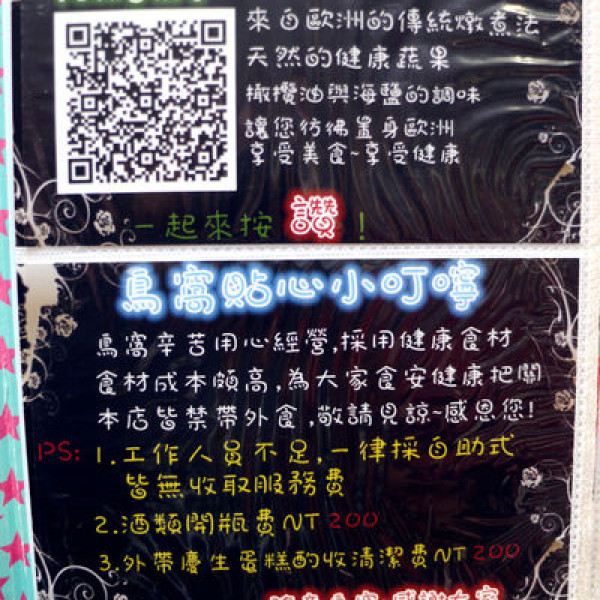 來自歐洲的傳統燉煮法
天然的健康蔬果
橄欖油與海鹽的調味
讓您彷彿置身歐洲
享受美食~享受健康
一起來按 讚 !
鳥窩貼心小叮嚀
鳥窩辛苦用心經營,採用健康食材
食材成本頗高,為大家食安健康把關
本店皆禁帶外食,敬請見諒~感恩您!
PS: 1.工作人員不足,一律採自助式
皆無收取服務費
2.酒類開瓶費NT 200
3.外帶慶生蛋糕酌收清潔費NT 200